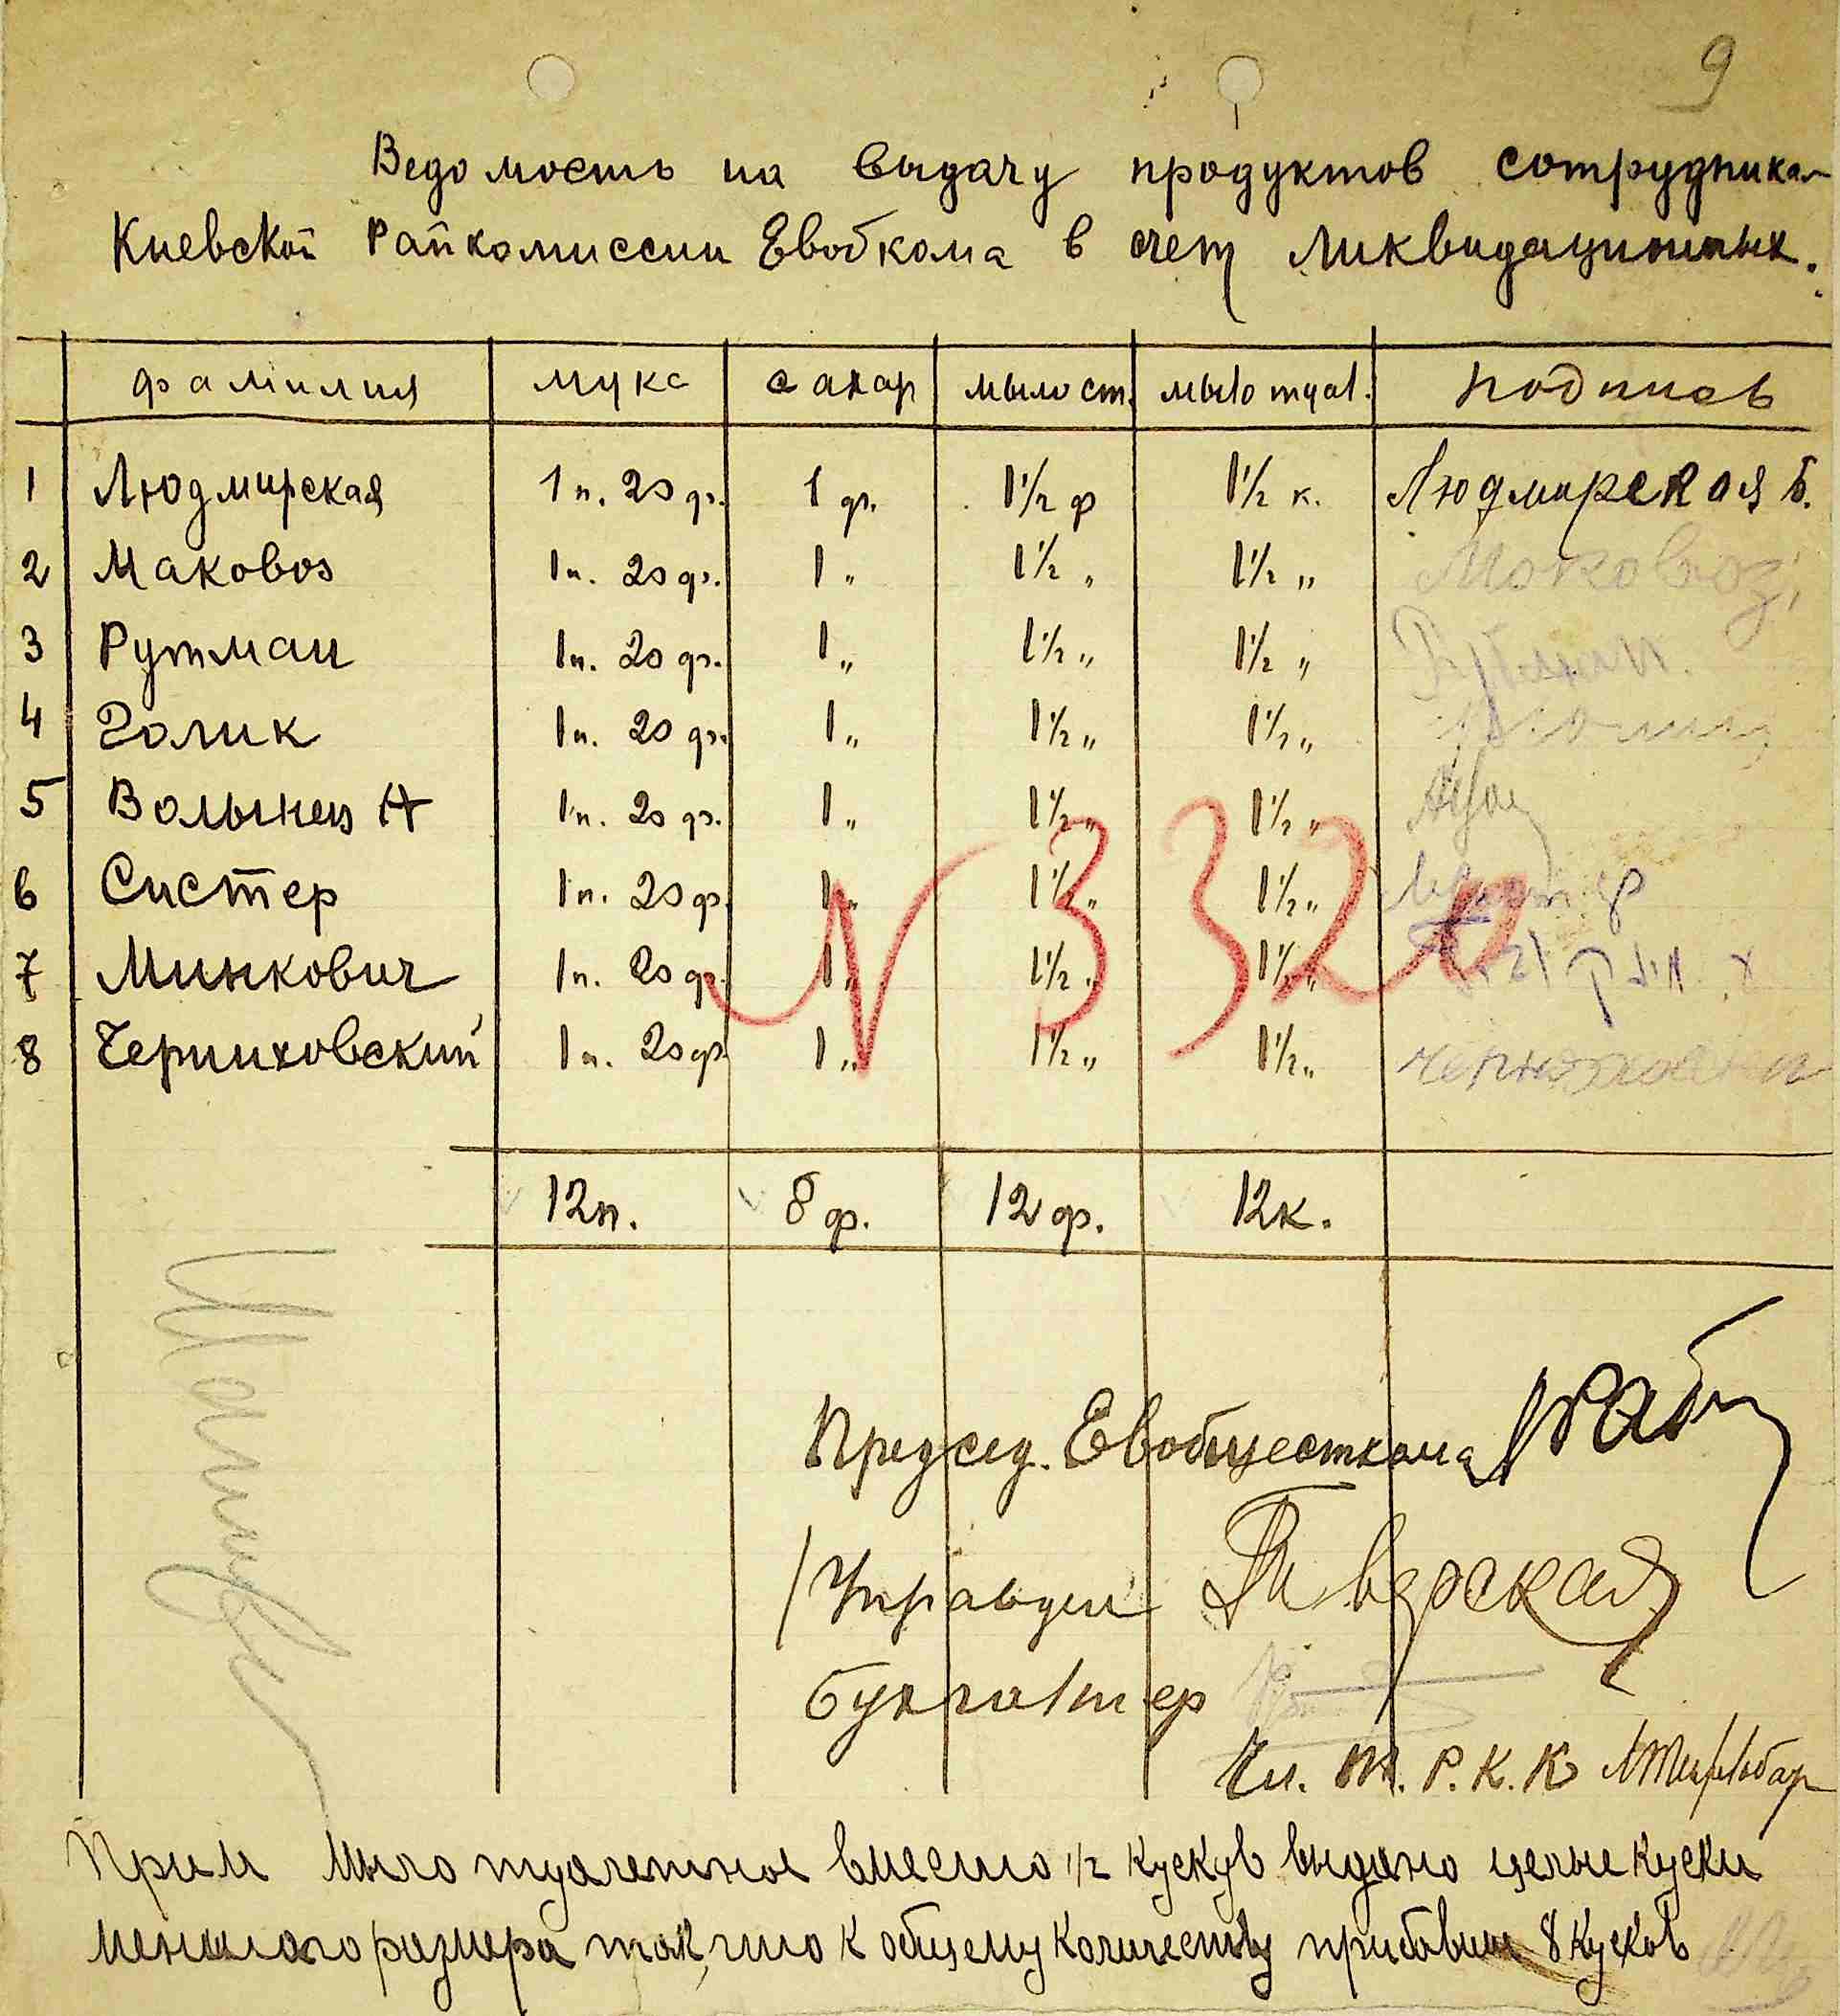 9
Ведомость на выдачу продуктов сотрудникам
Киевской Райкомиссии Евобкома в счет ликвидационных.
фамилия мука сахар мыло ст. мыло туал. подпись
1 Людмирская 1 п. 20 ф. 1 ф. 1½ ф 1½ к. Людмирская Б.
2 Маковоз 1 п. 20 ф. 1 " 1½ " 1½ " Маковоз
3 Рутман 1 п. 20 ф. 1 " 1½ " 1½ "
4 Голик 1 п. 20 ф. 1 " 1½ " 1½ "
5 Волынец Н 1 п. 20 ф. 1 " 1½ " 1½ "
6 Систер 1 п. 20 ф. 1 " 1½ " 1½ " Систер
7 Минкович 1 п. 20 ф. 1 " 1½ " 1½ "
8 Черниховский 1 п. 20 ф. 1 " 1½ " 1½ "
N 332
12 п. 8 ф. 12 ф. 12 к.
Председ. Евобщесткома
Управдел Тверская
бухгалтер
Чл. Т. Р. К. К
Прим Мыло туалетное вместо 1/2 кусков выдано целые куски
меньшего размера так, что к общему количеству прибавили 8 кусков